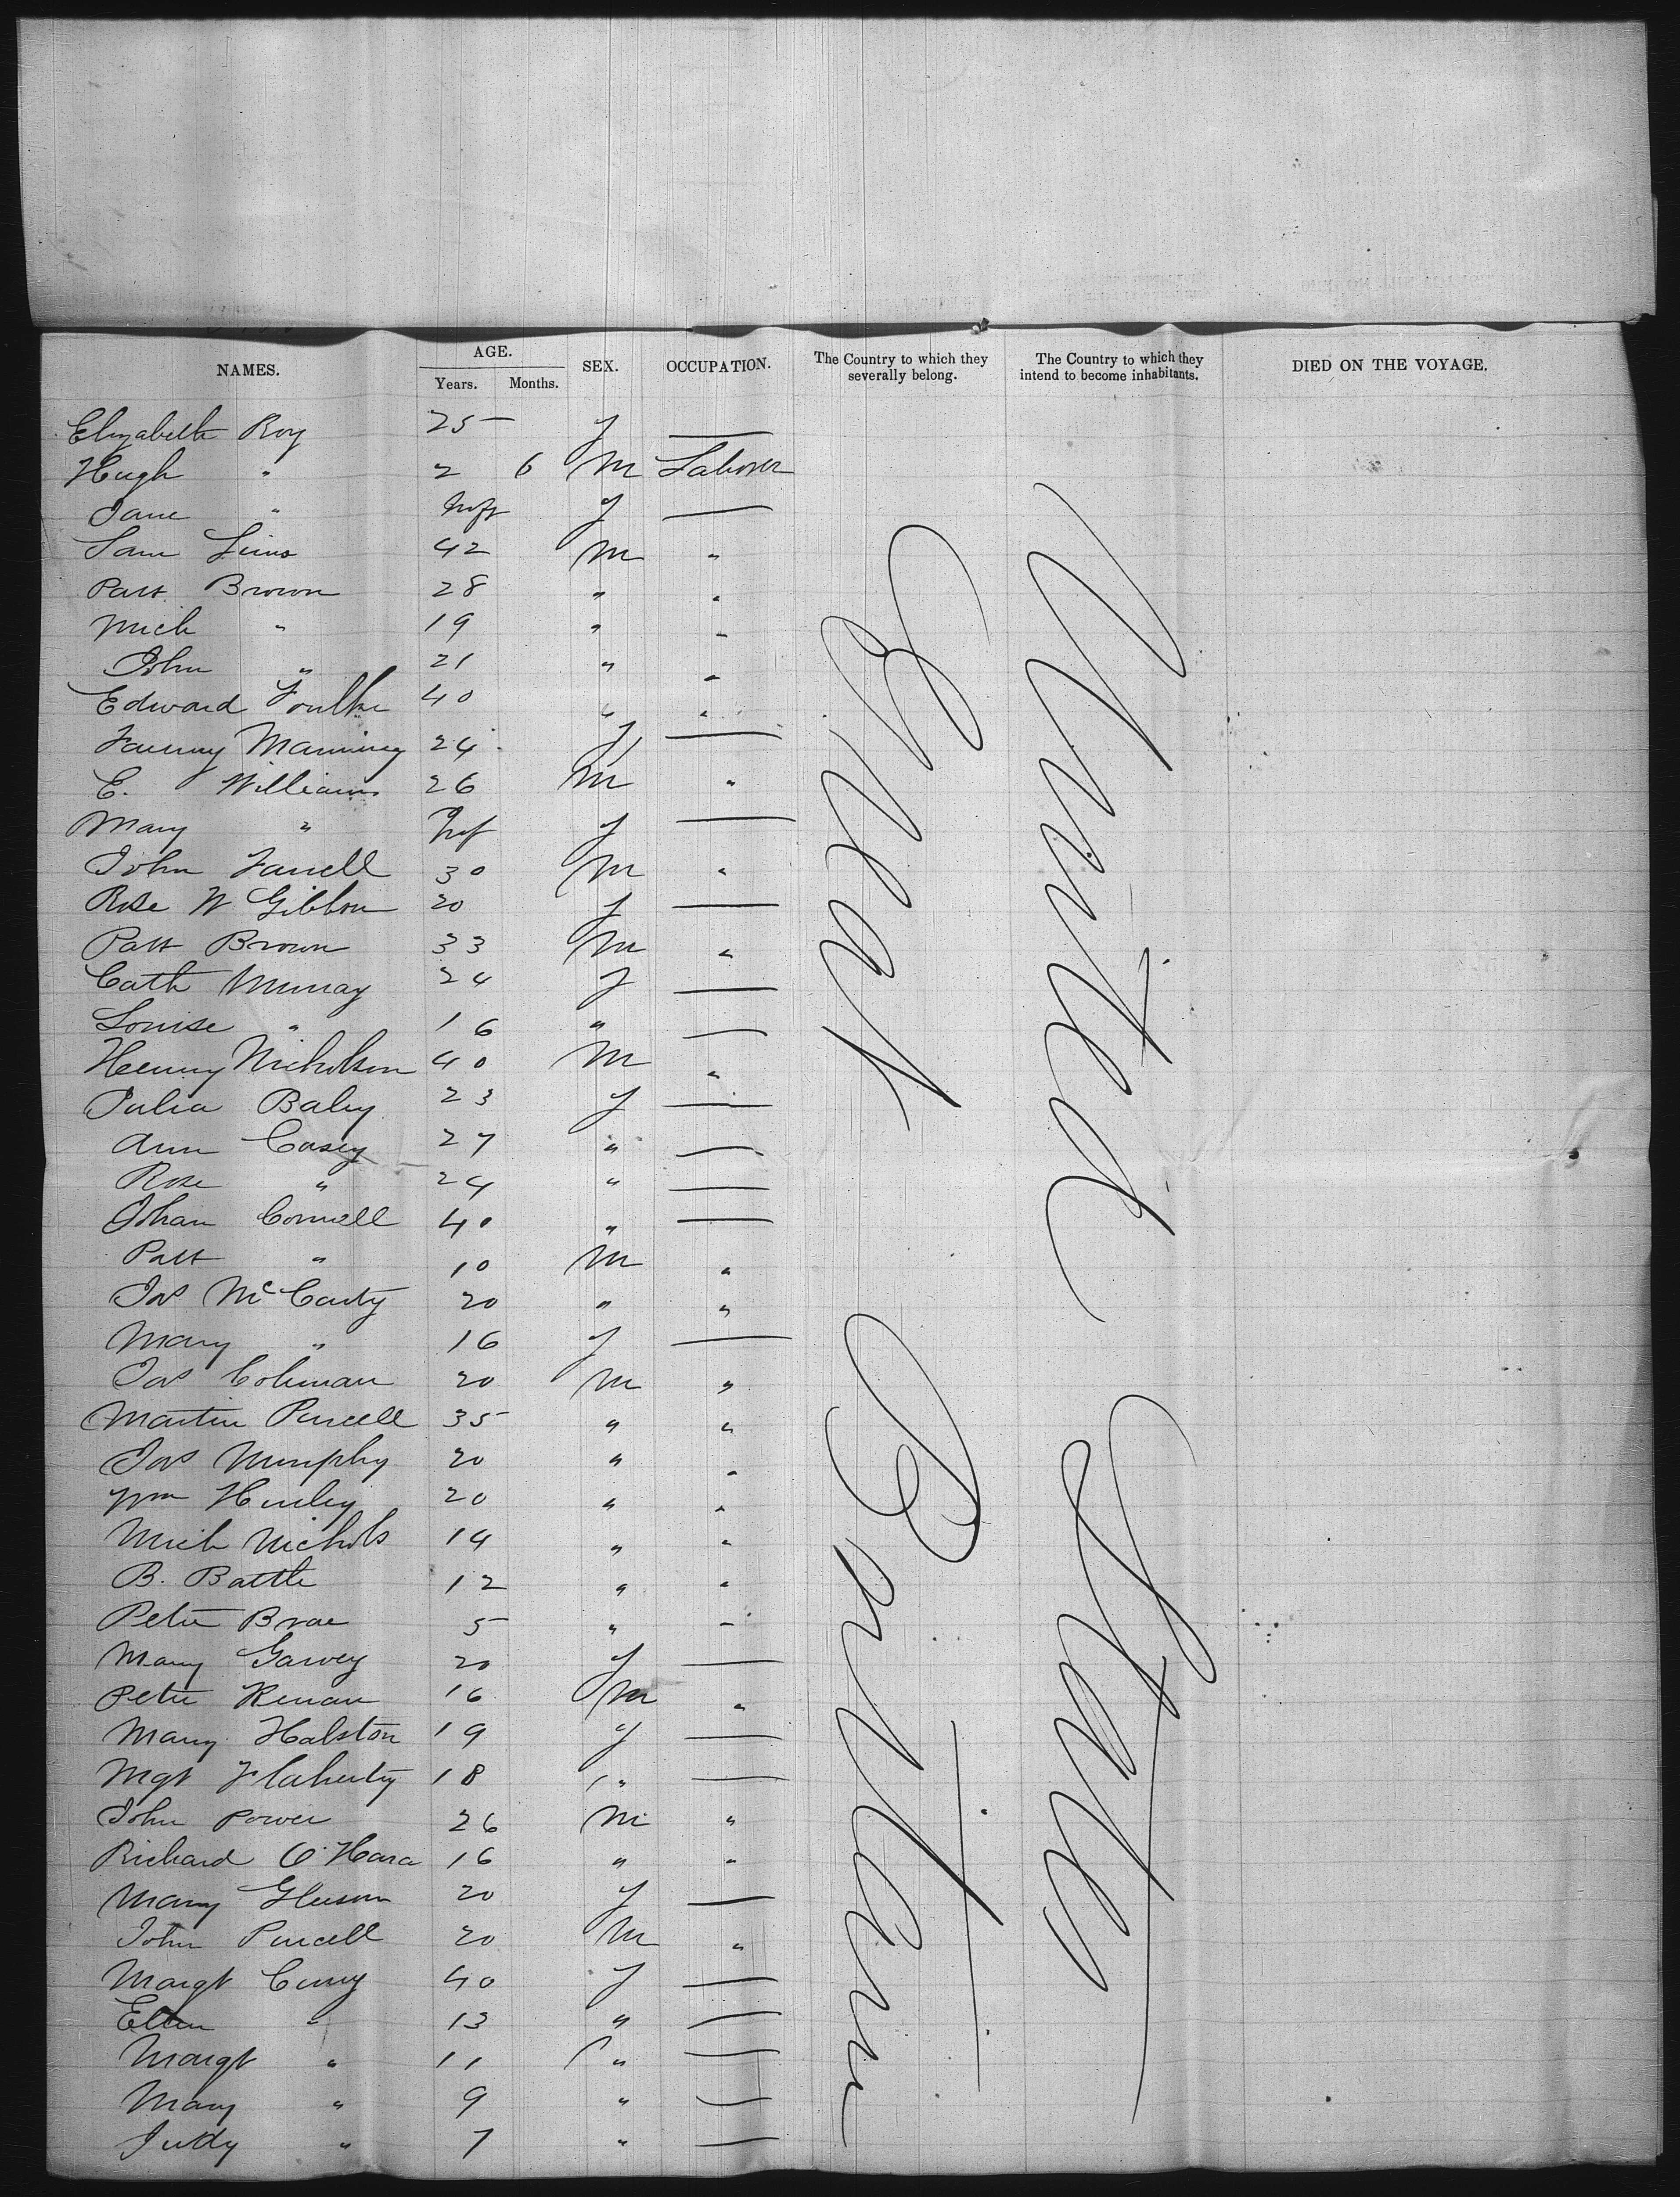 NAMES. AGE. SEX. OCCUPATION. The Country to which they severally belong. The Country to which they intend to become inhabitants. DIED ON THE VOYAGE.
Years. Months.
Elizabeth Roy 25 f —
Hugh " 2 6 m Laborer
Jane " Inft f —
Sam 42 m "
Patt Brown 28 " "
Mich " 19 " "
John " 21 " "
Edward Foulke 40 " "
Fanny Manning 24 f —
E. Williams 26 m "
Mary " Inf f —
John Farrell 30 m "
Rose W Gibbon 20 f —
Patt Brown 33 m "
Cath Murray 24 f —
Louise " 16 " —
Henny Nicholson 40 m "
Julia Baley 23 f —
Ann Casey 27 " —
Rose " 24 " —
Johan Connell 40 " —
Patt " 10 m "
Jas McCarty 20 " "
Mary " 16 f —
Jas Coleman 20 m "
Martin Purcell 35 " "
Jas Murphy 20 " "
Wm Hurley 20 " "
Mich Nichols 14 " "
B. Battle 12 " "
Peter Brae 5 " "
Mary Garvey 20 f —
Peter Kenan 16 m "
Mary Halston 19 f —
Mgt Flaherty 18 " —
John Power 26 m "
Richard O'Hara 16 " "
Mary Gleeson 20 f —
John Purcell 20 m "
Margt Curry 40 f —
Ellen " 13 " —
Margt " 11 " —
Mary " 9 " —
Judy " 7 " —
Great Britain
United States